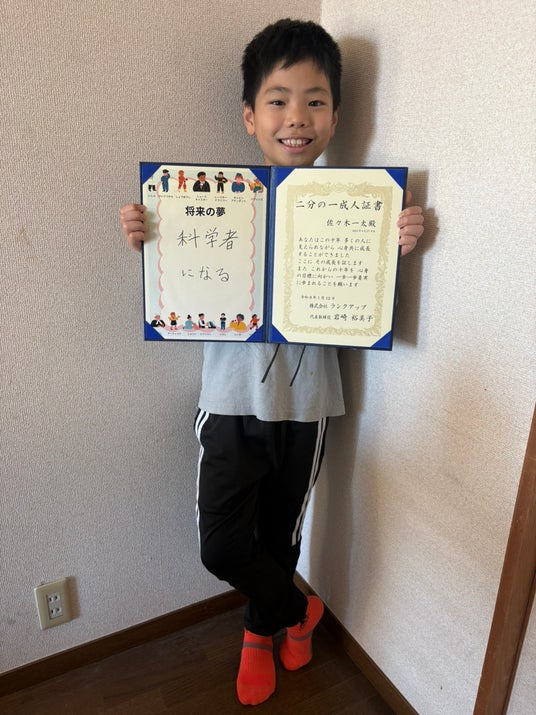 将来の夢
科学者
になる
二分の一成人証書
佐々木一太殿
あなたはこの十年 多くの人に
支えられながら 心身共に成長
することができました
ここに その成長を証します
また これからの十年も 心身
の目標に向かい 一歩一歩着実
に歩まれることを願います
株式会社 ランクアップ
代表取締役 岩崎 裕美子